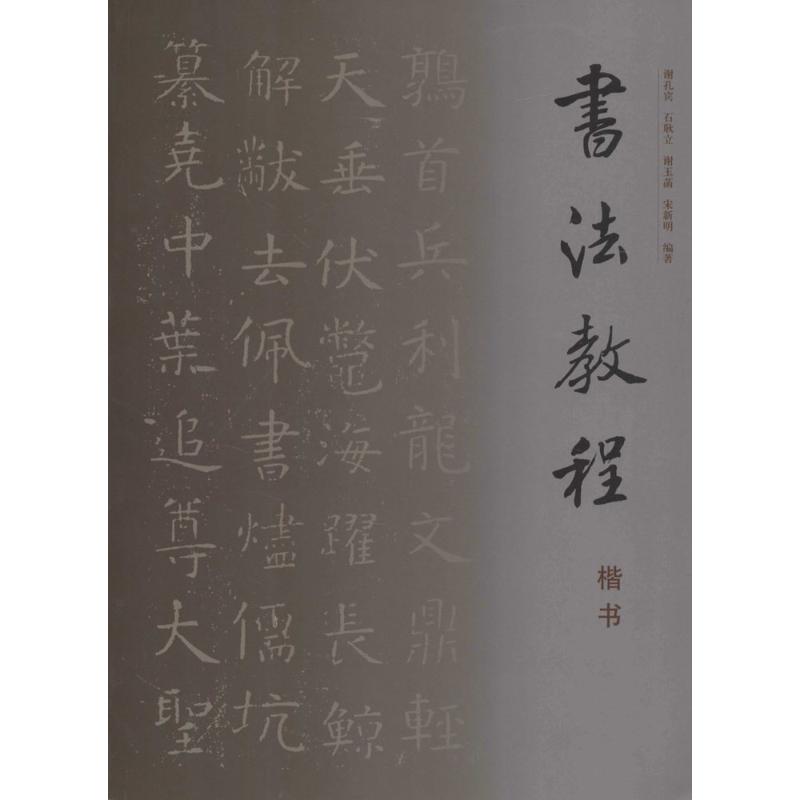 谢孔宾 石耿立 谢玉菡 宋新明 编著
書法教程
楷书
鶉首兵利龍文鼎輕
天垂伏鼈海躍長鯨
解黻去佩書燼儒坑
纂堯中葉追尊大聖